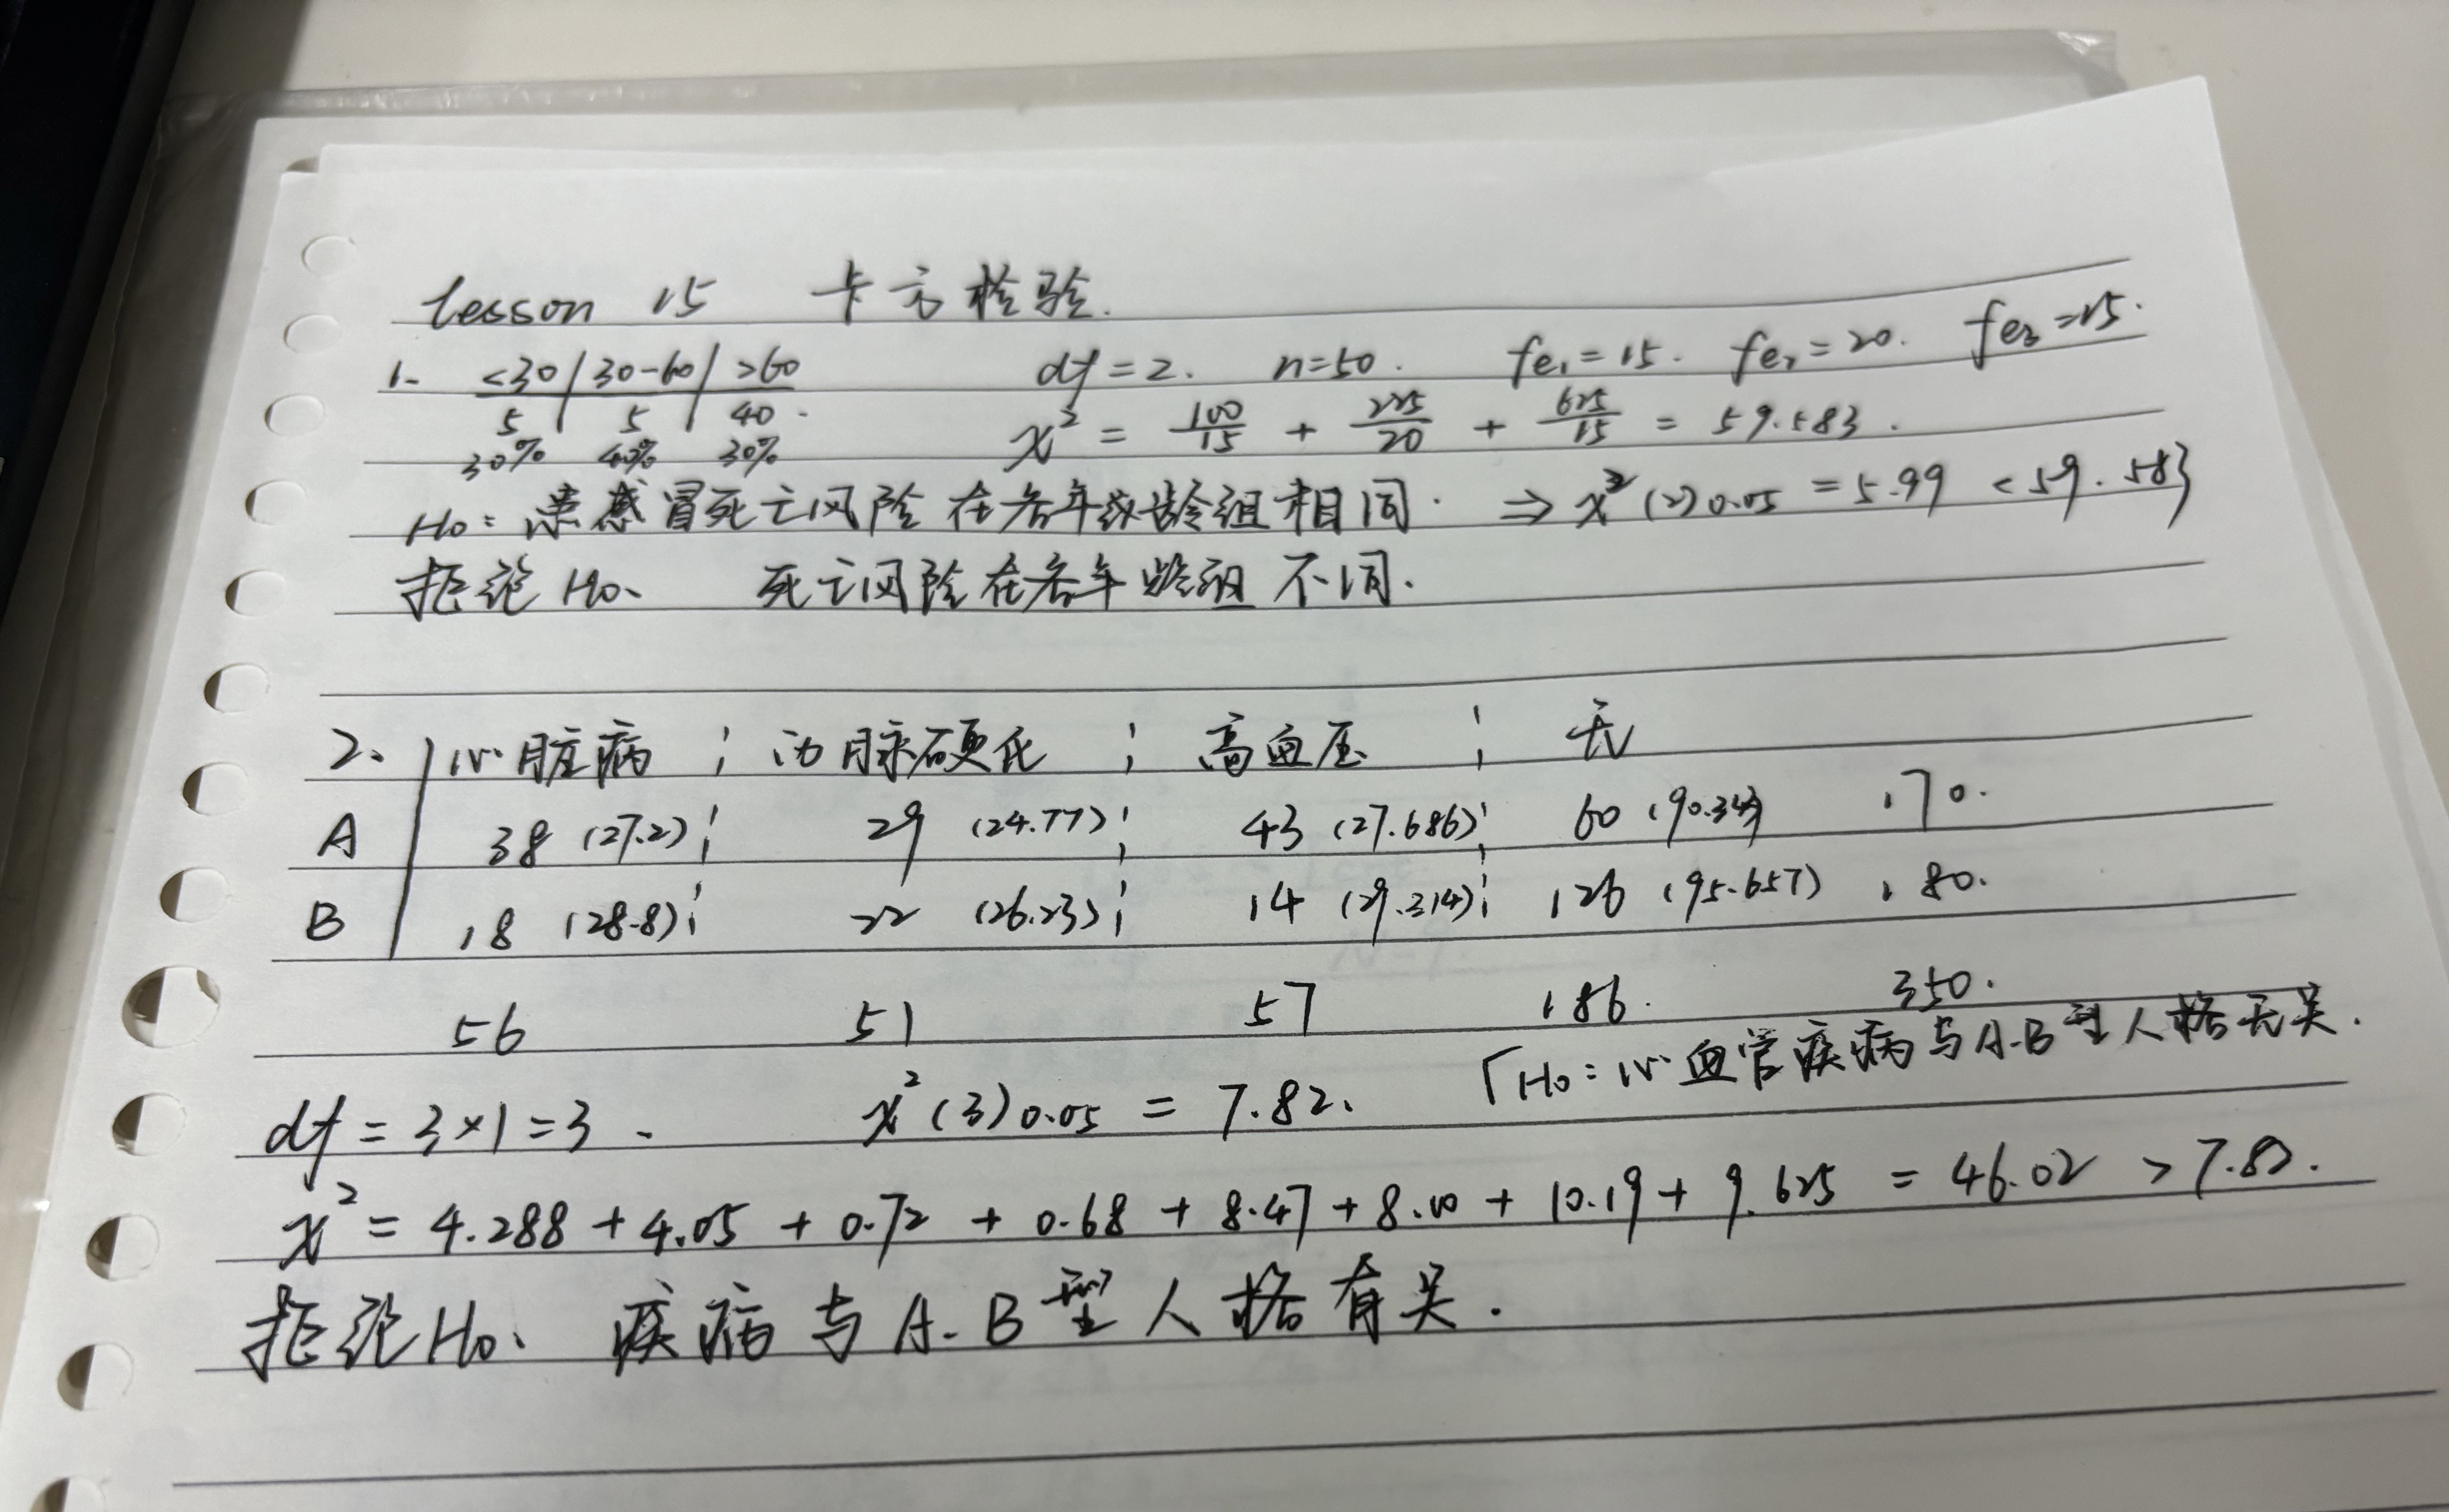 lesson 15 卡方检验.
1. <30 | 30-60 | >60 df=2. n=50. fe₁=15. fe₂=20. fe₃=15.
5 | 5 | 40. χ² = 100/15 + 225/20 + 625/15 = 59.583.
30% 40% 30%
H₀: 患感冒死亡风险在各年龄组相同. ⇒ χ²(2)0.05 = 5.99 < 59.583
拒绝H₀、 死亡风险在各年龄组不同.
2、 心脏病 ; 动脉硬化 ; 高血压 ; 无
A 38 (27.2) ; 29 (24.77) ; 43 (27.686) ; 60 (90.343) 170.
B 18 (28.8) ; 22 (26.23) ; 14 (29.314) ; 126 (95.657) 180.
56 51 57 186. 350.
「H₀: 心血管疾病与A.B型人格无关.
df = 3×1=3 . χ²(3)0.05 = 7.82、
χ² = 4.288 + 4.05 + 0.72 + 0.68 + 8.47 + 8.00 + 10.19 + 9.625 = 46.02 > 7.82.
拒绝H₀、 疾病与A.B型人格有关.